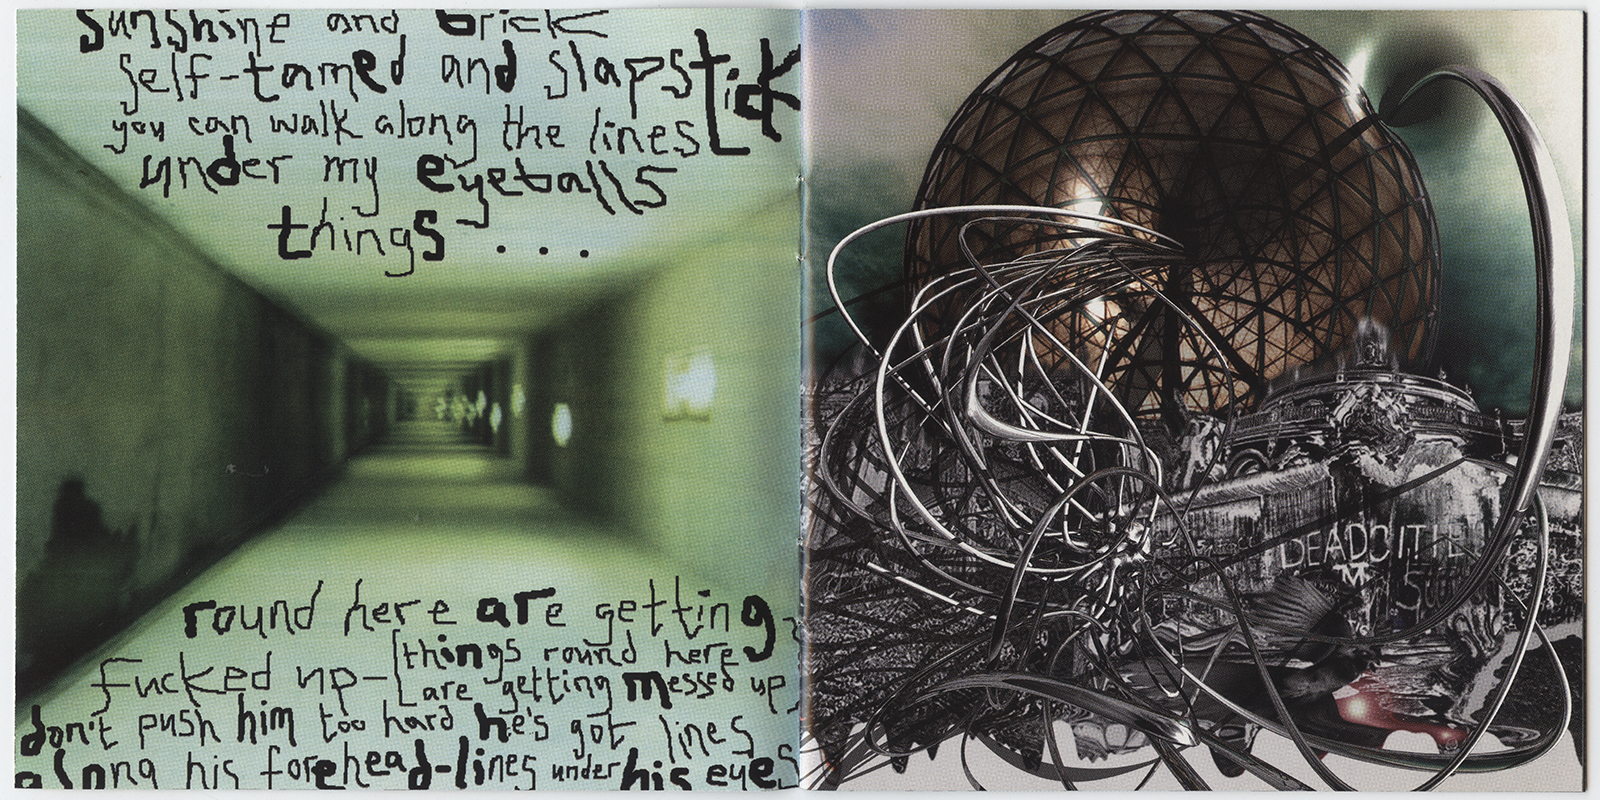 sunshine and brick
self-tamed and slapstick
you can walk along the lines
under my eyeballs
things ...
round here are getting
fucked up-[things round here
[are getting messed up
don't push him too hard he's got lines
along his forehead-lines under his eyes
DEADCITIE